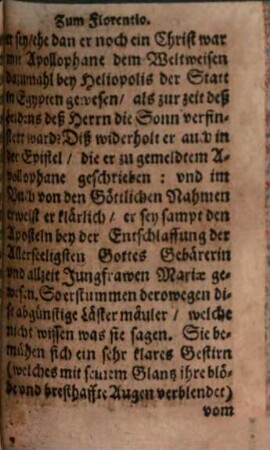 Zum Florentio.
er sey/ehe dan er noch ein Christ war
mit Apollophane dem Weltweisen
dazumahl bey Heliopolis der Statt
in Egypten gewesen/ als zur zeit deß
leidens deß Herrn die Sonn verfin-
stert ward? Diß widerholt er auch in
der Epistel/ die er zu gemeldtem A-
pollophane geschrieben: vnd im
Buch von den Göttlichen Nahmen
erweist er klärlich/ er sey sampt den
Aposteln bey der Entschlaffung der
Allerseeligsten Gottes Gebärerin
vnd allzeit Jungfrawen Mariæ ge-
wesen. So erstummen derowegen di-
se abgünstige Läster mäuler/ welche
nicht wissen was sie sagen. Sie be-
mühen sich ein sehr klares Gestirn
(welches mit seinem Glantz ihre blö-
de vnd bresthaffte Augen verblendet)
vom